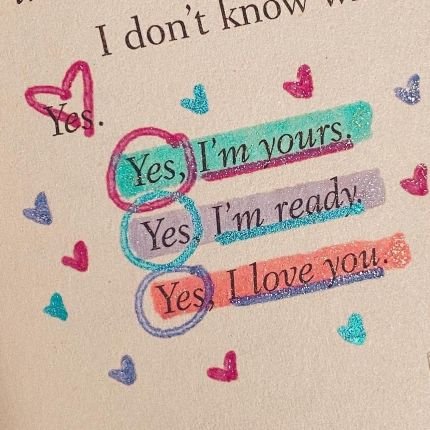 I don't know
Yes.
Yes, I'm yours.
Yes, I'm ready.
Yes, I love you.